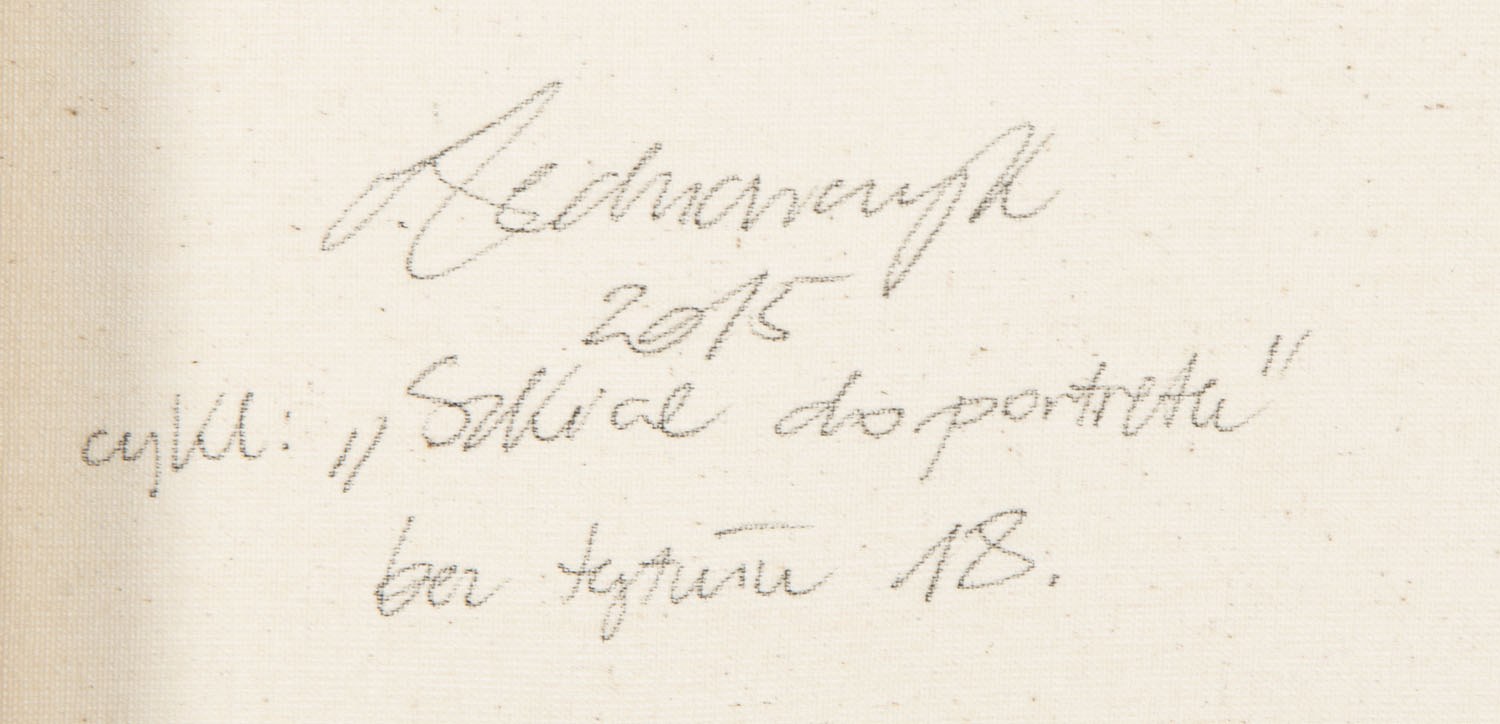 2015
cykl: „Szkice do portretu"
bez tytułu 18.